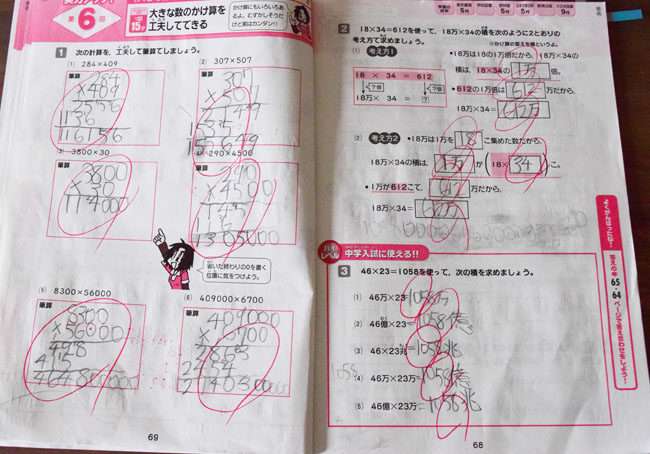 第6回
1回15分
大きな数のかけ算を
工夫してできる
かけ算にもいろいろある
よ。むずかしそうだ
けど実はカンタン!!
1 次の計算を、工夫して筆算でしましょう。
(1) 284×409
筆算
284
×409
2556
1136
116156
(2) 307×507
筆算
307
×507
2149
1535
155649
(3) 3800×30
筆算
3800
×30
114000
(4) 290×4500
筆算
290
×4500
145
1305000
省いた終わりの0を書く
位置に気をつけよう。
(5) 8300×56000
筆算
8300
×56000
498
415
464800000
(6) 409000×6700
筆算
409000
×6700
2863
2454
2740300000
69
2 18×34=612を使って、18万×34の積を次のように2とおりの
考え方で求めましょう。
※かけ算の答えを積というよ。
(1) 考え方1
18 × 34 = 612
?倍
?倍
18万× 34 = ?
•18万は18の1万倍だから、18万×34の
積は、18×34の 1万 倍。
•612の1万倍は 612 万だから、
18万×34= 612万
(2) 考え方2
•18万は1万を 18 こ集めた数だから、
18万×34の積は、 1万 が (18× 34 )こ。
•1万が612こで、 612 万だから、
18万×34= 612万
ハイレベル 中学入試に使える!!
3 46×23=1058を使って、次の積を求めましょう。
(1) 46万×23=1058万
(2) 46億×23=1058億
(3) 46×23兆=1058兆
(4) 46万×23万=1058億
(5) 46億×23万=1058兆
68
よくがんばったね!
答えの本
65・64
ページで答え合わせをしよう!